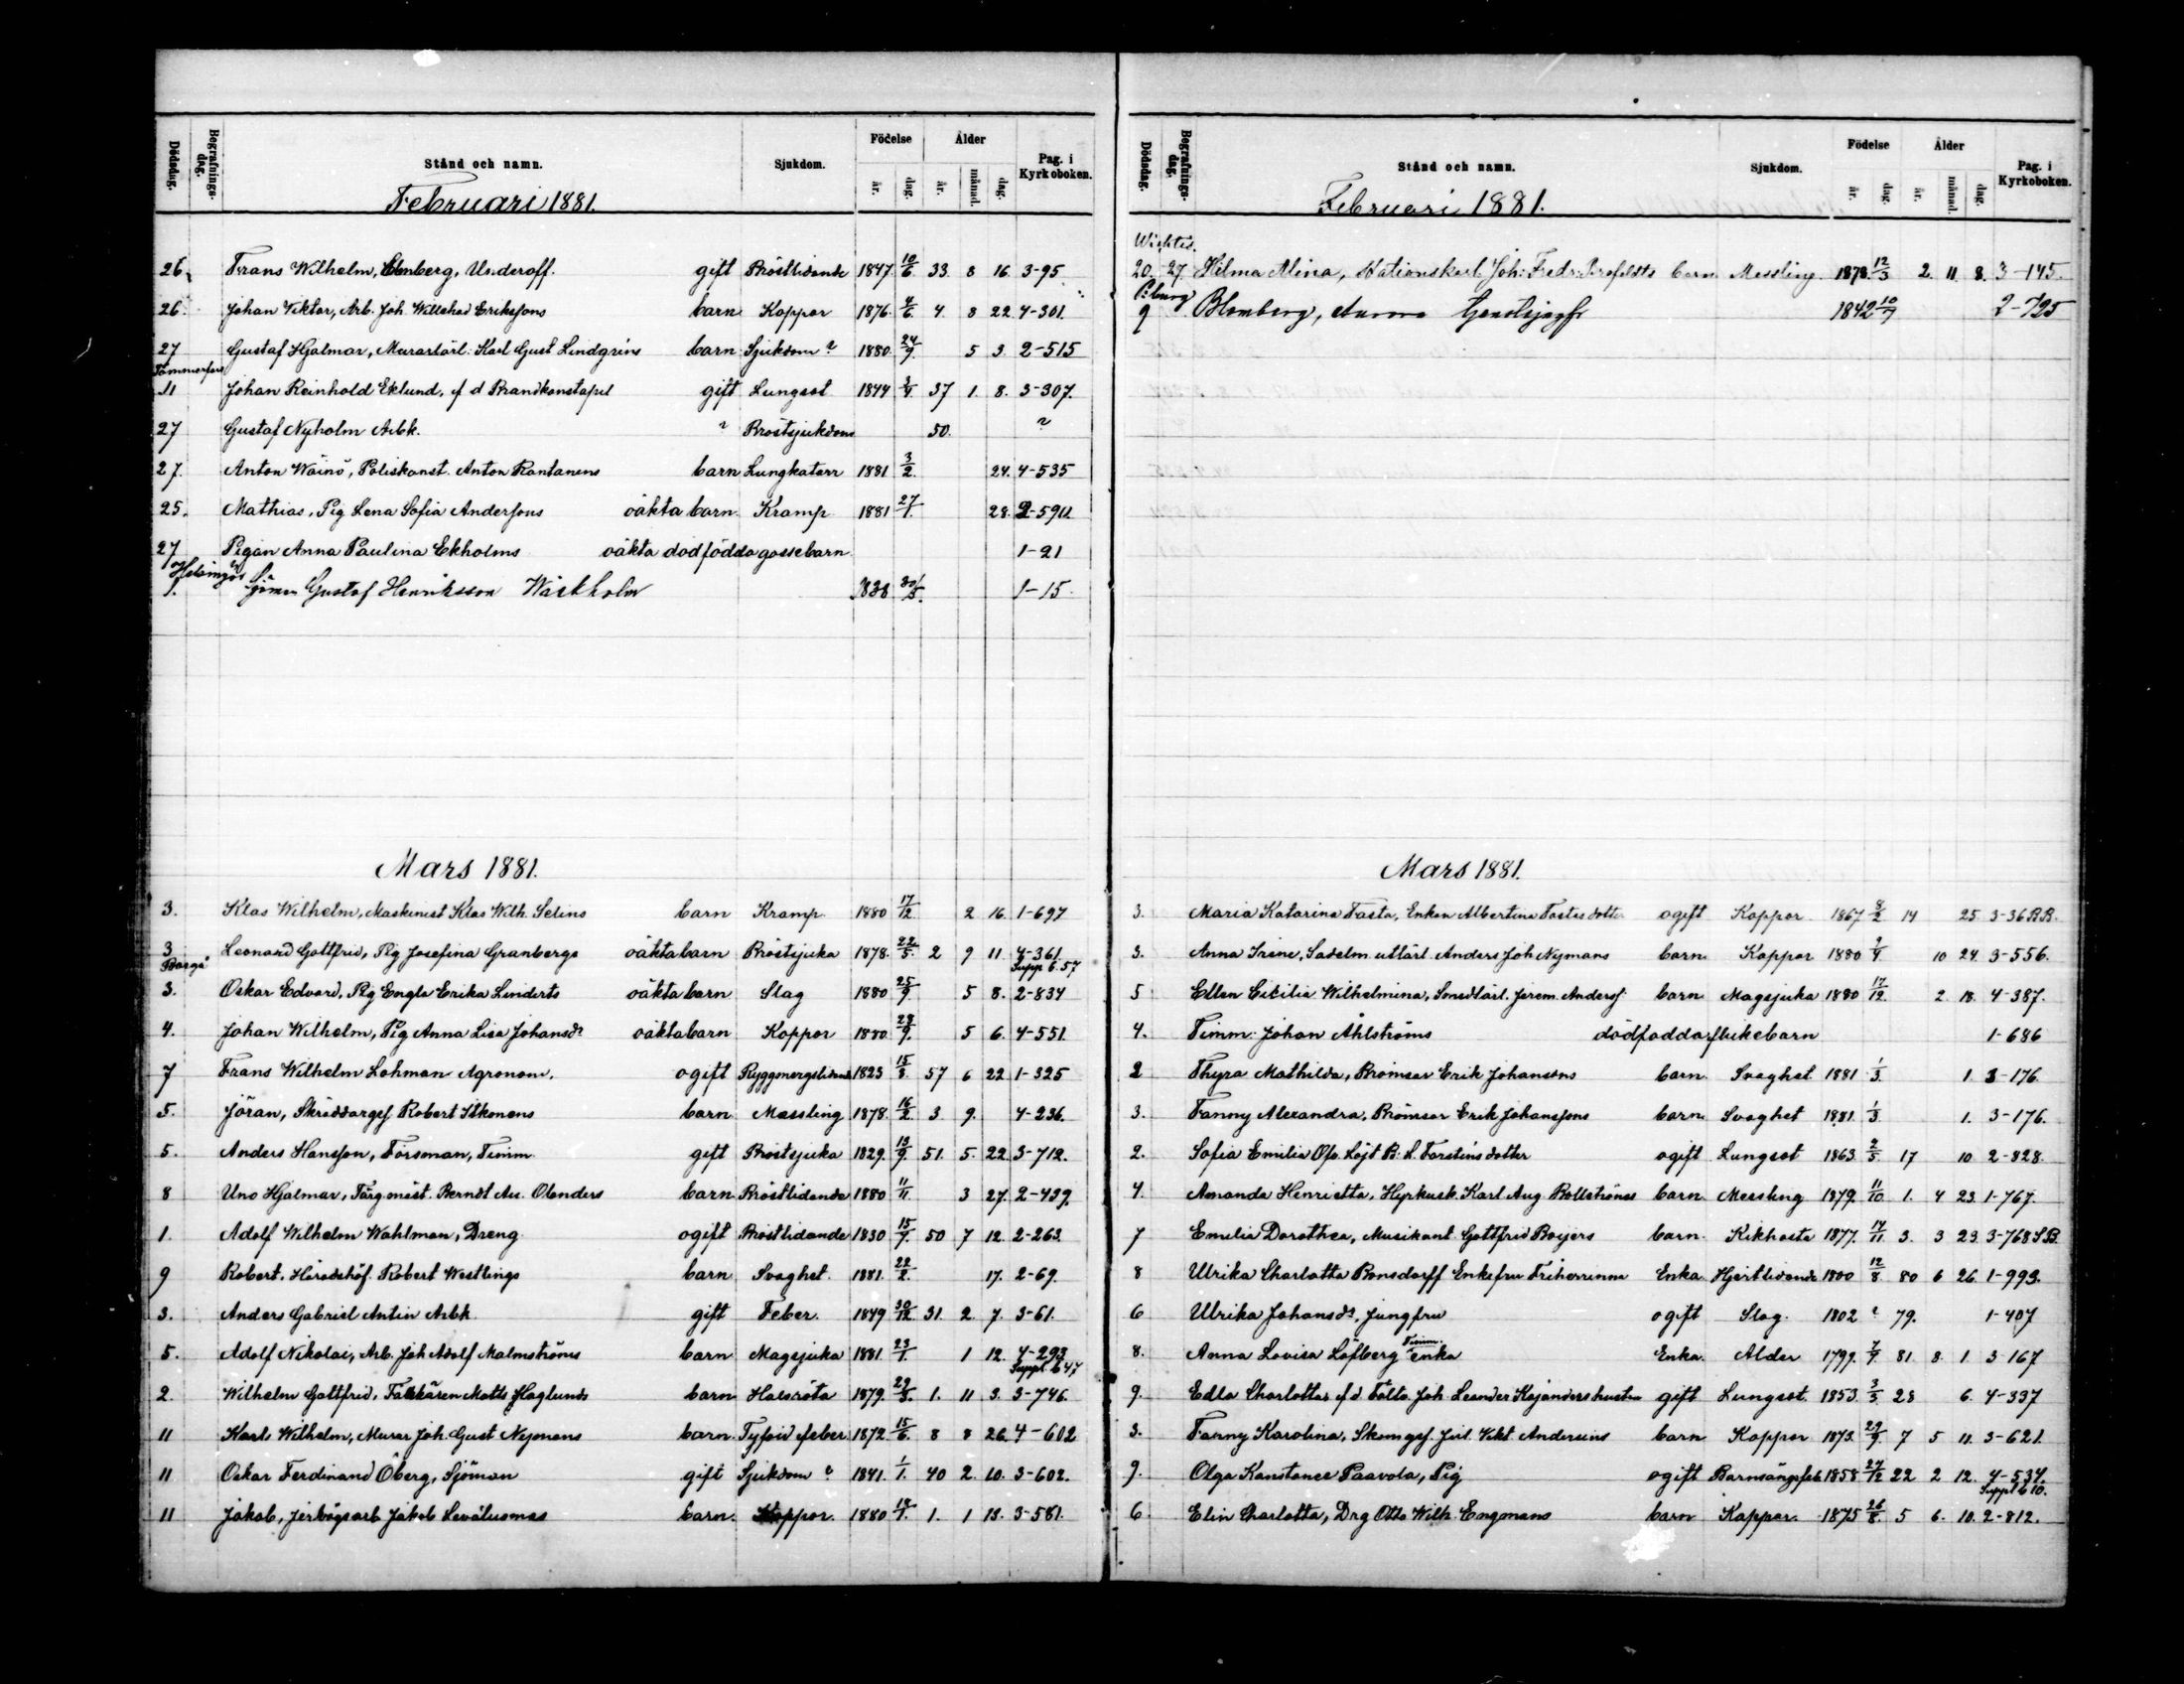 Dödsdag. Begrafnings-dag. Stånd och namn. Sjukdom. Födelse år. dag. Ålder år. månad. dag. Pag. i Kyrkoboken.
Februari 1881.
26. Frans Wilhelm, Underoff. gift Bröstlidande 1847 10/6 33. 8 16. 3-95.
26. Johan Viktor, Arb. Joh. Willehad Erikssons barn Koppor 1876. 4/6 4. 8 22. 4-301.
27 Gustaf Hjalmar, Murarlärl. Karl Gust Lindgréns barn Sjukdom? 1880. 24/9 5 3. 2-515
Tammerfors
11 Johan Reinhold Eklund, f d Brandkonstapel gift Lungsot 1844 3/1 37 1. 8. 3-307.
27 Gustaf Nyholm Arbk. ? Bröstsjukdom 50. ?
27. Anton Wäinö, Poliskonst. Anton Rantanens barn Lungkatarr 1881 3/2 24. 4-535
25. Mathias, Pig Lena Sofia Anderssons oäkta barn Kramp 1881 27/1 28. 2-590.
27 Pigan Anna Paulina Ekholms oäkta dödfödda gossebarn 1-21
Helsingör
1. Sjöman Gustaf Henriksson Wäskholm 1838 30/5 1-15.
Mars 1881.
3. Klas Wilhelm, Maskinist Klas Wilh. Selins barn Kramp 1880 17/12 2 16. 1-697
3 Leonard Gottfrid, Pig Josefina Granbergs oäkta barn Bröstsjuka 1878. 22/5 2 9 11. 4-361 Supp b. 57
Borgå
3. Oskar Edvard, Pig Engla Erika Linderts oäkta barn Slag 1880 25/9 5 8. 2-834
4. Johan Wilhelm, Pig Anna Lisa Johansdr oäkta barn Koppor 1880 28/9 5 6. 4-551.
7 Frans Wilhelm Lohman Agronom. ogift Ryggmergslidande 1823 15/8 57 6 22 1-325
5. Jöran, Skräddargef Robert Itkonens barn Messling 1878. 16/2 3 9. 4-236.
5. Anders Hansson, Försman, Timm. gift Bröstsjuka 1829. 13/9 51. 5. 22 3-712.
8 Uno Hjalmar, Färg.mäst. Berndt Au. Olanders barn Bröstlidande 1880 11/11 3 27. 2-439.
1. Adolf Wilhelm Wahlman, Dreng ogift Bröstlidande 1830 15/7 50 7 12. 2-263.
9 Robert, Häradshöf. Robert Westlings barn Svaghet. 1881. 22/2 17. 2-69.
3. Anders Gabriel Antin Arbk. gift Feber. 1849 30/12 31. 2. 7. 3-61.
5. Adolf Nikolai, Arb. Joh Adolf Malmströms barn Magsjuka 1881. 23/1 1 12. 4-293 Suppl b 47
2. Wilhelm Gottfrid, Matts Haglunds barn Halsröta 1879. 29/3 1. 11 3. 3-746.
11 Karl Wilhelm, Murar Joh. Gust Nymans barn. Tyfoid feber 1872. 15/6 8 8 26. 4-602
11 Oskar Ferdinand Öberg, Sjöman gift Sjukdom? 1841. 1/1 40 2. 10. 3-602.
11 Jakob, Jernvägsarb Jakob Levälüomas barn. Koppor. 1880 18/1 1. 1 13. 3-581.
Dödsdag. Begrafnings-dag. Stånd och namn. Sjukdom. Födelse år. dag. Ålder år. månad. dag. Pag. i Kyrkoboken.
Februari 1881.
Wichtis.
20. 27. Hilma Alina, Stationskarl. Joh: Fredr: barn Messling. 1878. 12/3 2. 11 8. 3-145.
9 Blomberg, Aurora 1842 10/7 2-725
Mars 1881.
3. Maria Katarina Fasta, Enkan Albertina Fastas dotter ogift Koppor 1867 8/2 14 25 3-36 BB.
3. Anna Irene, Sadelm. utlärl. Anders Joh Nymans barn Koppor 1880 9/4 10 24. 3-556.
5 Ellen Cecilia Wilhelmina, Smedlärl. Jerem. Anderss. barn Magsjuka 1880 17/12 2. 18. 4-387.
4. Timm. Johan Åhlströms dödfödda flickebarn 1-686
2 Thyra Mathilda, Bromsar Erik Johanssons barn Svaghet 1881 1/3 1. 3-176.
3. Fanny Alexandra, Bromsar Erik Johanssons barn Svaghet 1881. 1/3 1. 3-176.
2. Sofia Emilia Öfv. Löjt B. L. Forsténs dotter ogift Lungsot 1863. 2/5 17 10 2-828.
4. Amanda Henrietta, Hyrkusk. Karl Aug. Bollströms barn Messling 1879. 11/10 1. 4 23. 1-767.
7 Emilia Dorothea, Musikant Gottfrid Boijers barn. Kikhosta 1877. 14/11 3. 3 23. 3-768 S.B.
8 Ulrika Charlotta Bonsdorff Enkefru Friherrinna Enka Hjertlidande 1800 12/8 80 6 26. 1-993.
6 Ulrika Johansdr, Jungfru ogift Slag. 1802 ? 79. 1-407
8. Anna Lovisa Löfberg Timm. enka Enka. Ålder 1799. 7/7 81 8. 1. 3-167
9. Edla Charlotta f.d. Fältv. Joh. Leander Kajanders hustru gift Lungsot. 1853. 3/3 28 6. 4-397
3. Fanny Karolina, Skomgef. Jul. Vikt. Anderséns barn Koppor 1873. 29/9 7 5 11. 3-621.
9. Olga Konstance Paavola, Pig ogift Barnsängsfeb. 1858 27/12 22 2 12. 4-534. Suppl b 10.
6. Elin Charlotta, Drg Otto Wilh. Engmans barn Koppor. 1875 26/8 5 6. 10. 2-812.